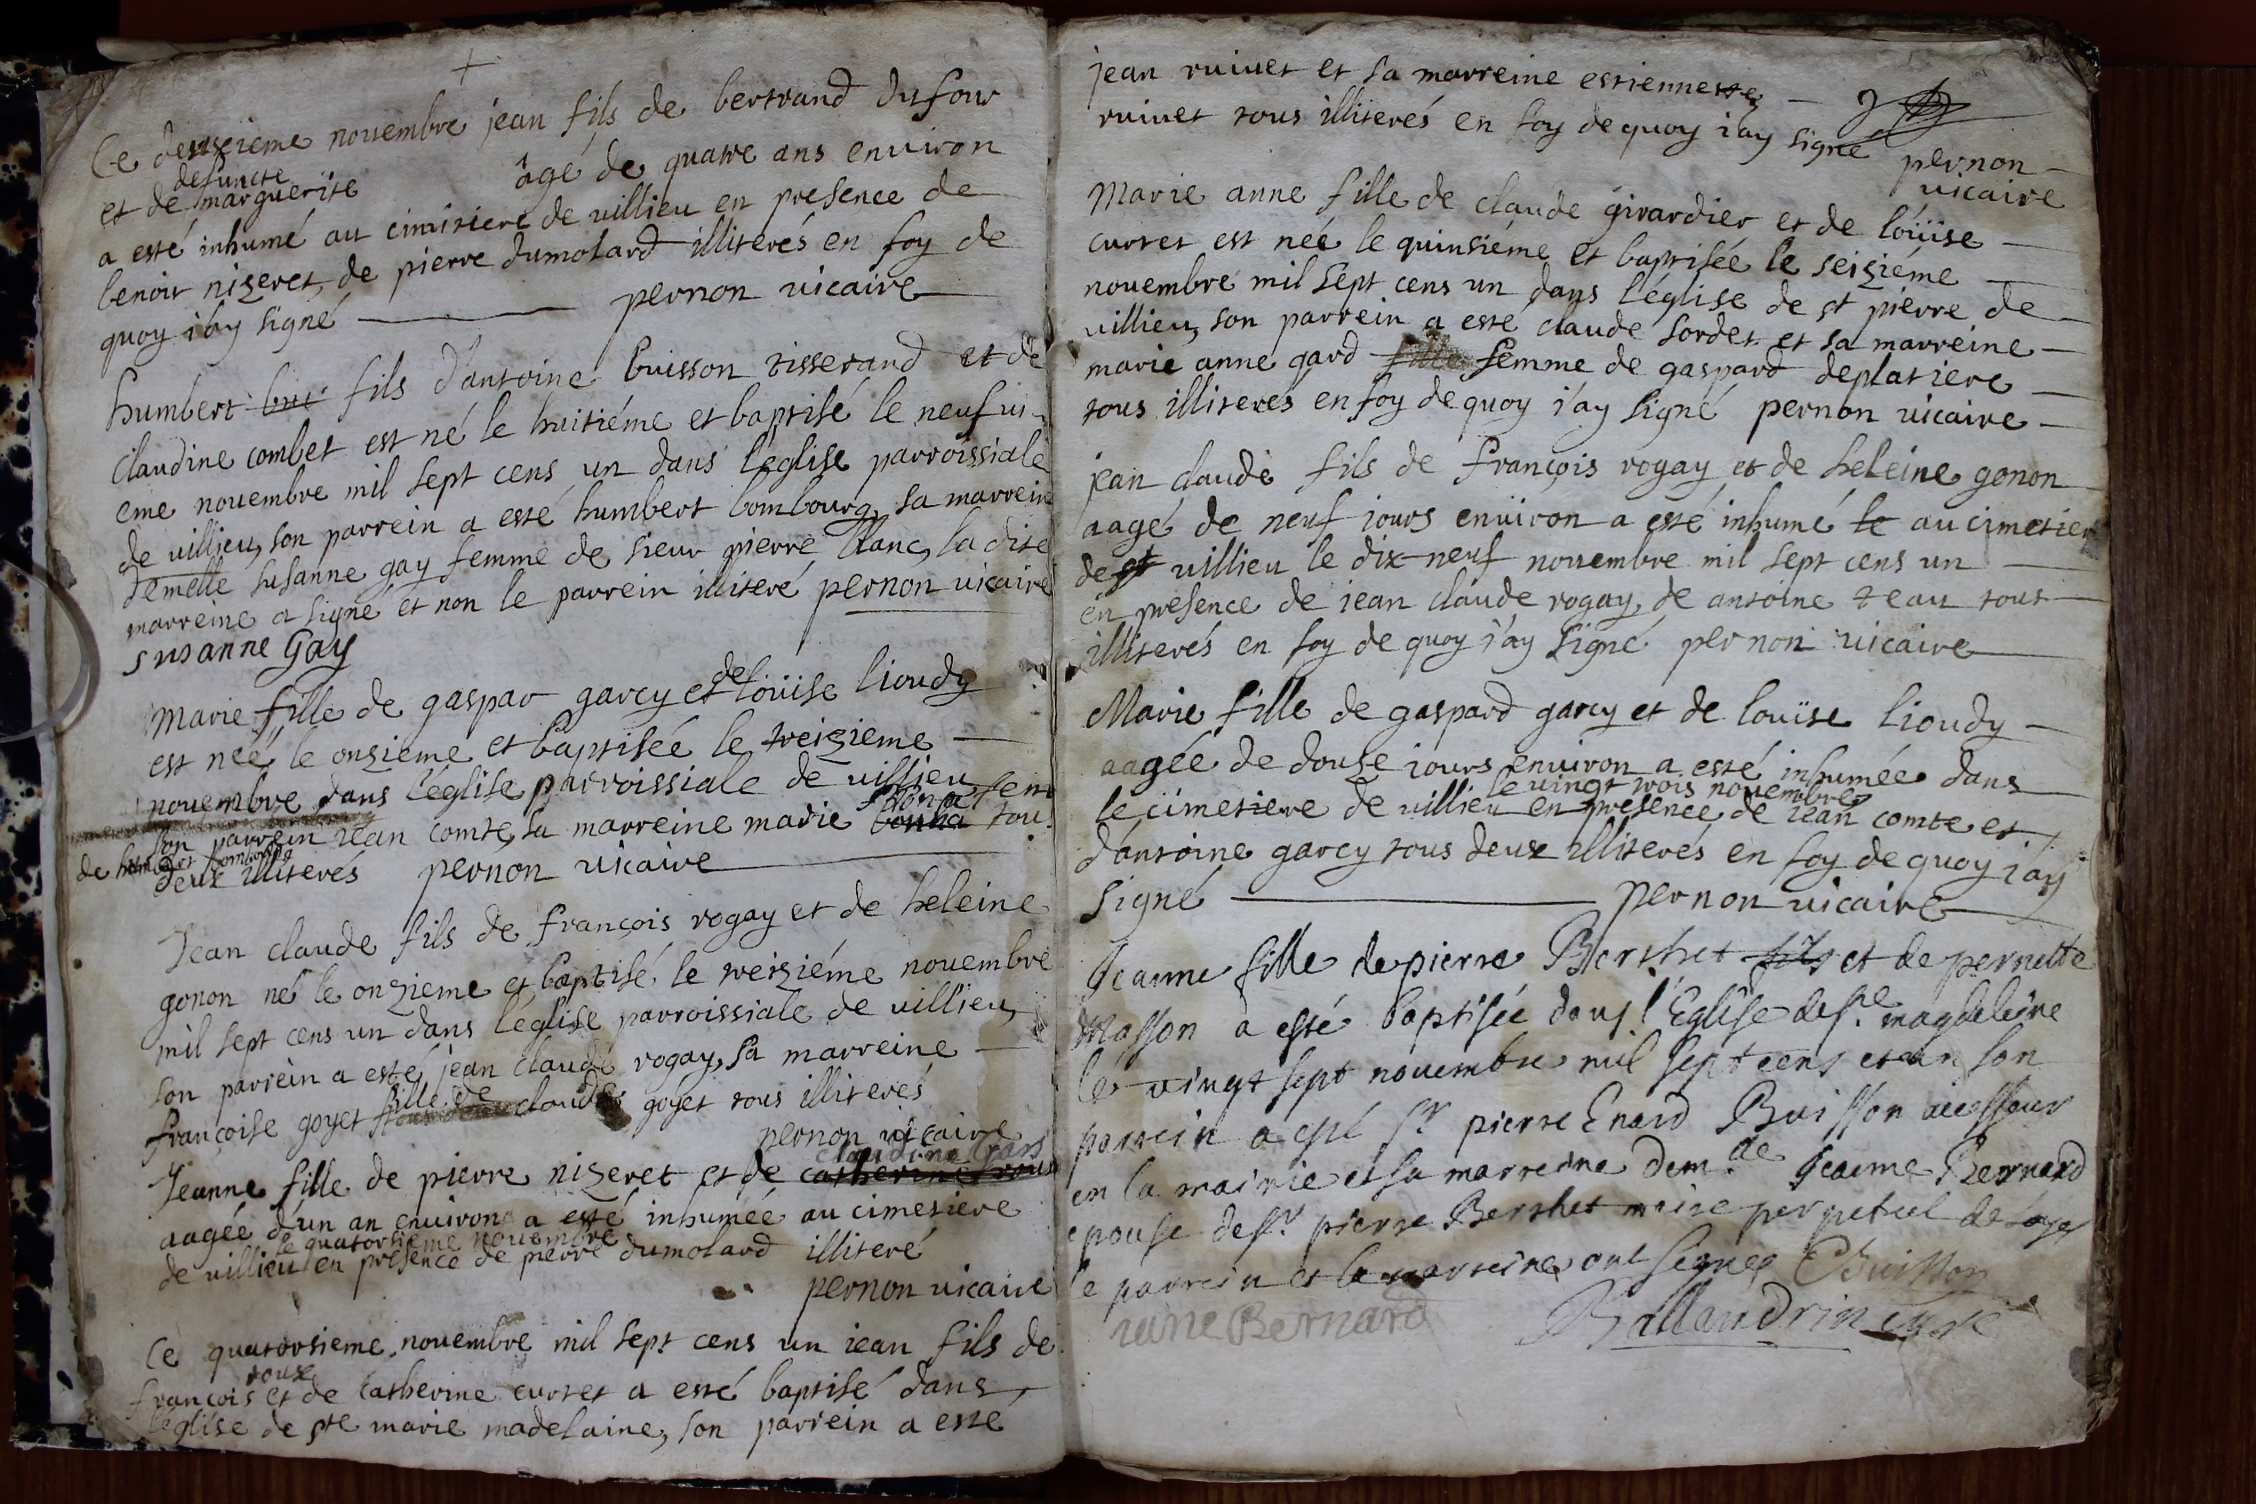 Ce deuxieme novembre jean fils de bertrand dufour
defuncte
et de marguerite âgé de quatre ans environ
a esté inhumé au cimitiere de villieu en presence de
benoit nizeret, de pierre dumolard illiterés en foy de
quoy i'ay signé pernon vicaire
humbert bui fils d'antoine buisson tisserand et de
claudine combet est né le huitiéme et baptisé le neufui-
eme novembre mil sept cens un dans l'eglise parroissiale
de villieu, son parrein a esté humbert bombourg, sa marreine
demelle susanne gay femme de sieur pierre blanc, la dite
marreine a signé et non le parrein illiteré pernon vicaire
susanne Gay
Marie fille de gaspar garcy et de loüise lioudy
est neé le onzieme et baptisée le treizieme
novembre dans l'eglise parroissiale de villieu
son parrein iean comte, sa marreine marie bonna tous
de humbert bombourg
deux illiterés pernon vicaire
Jean claude fils de françois rogay et de heleine
gonon né le onzieme et baptisé le treiziéme novembre
mil sept cens un dans l'eglise parroissiale de villieu,
son parrein a esté jean claude rogay, sa marreine
françoise goyet fille de claude goyet tous illiterés
pernon vicaire
claudine
Jeanne fille de pierre nizeret et de catherine
aagée d'un an environ a esté inhumée au cimetiere
le quatorsieme novembre
de villieu en presence de pierre dumolard illiteré
pernon vicaire
Ce quatorsieme novembre mil sept cens un iean fils de
roux
françois et de catherine curtet a esté baptisé dans
l'eglise de ste marie madelaine, son parrein a esté
jean ruivet et sa marreine estiennette
ruivet tous illiterés en foy de quoy i'ay signé pernon
vicaire
Marie anne fille de claude girardier et de loüise
curtet est neé le quinsiéme et baptisée le seiziéme
novembre mil sept cens un dans l'église de st pierre de
villieu, son parrein a esté claude sordet et sa marreine
marie anne gard fille femme de gaspard deplatiere
tous illiterés en foy de quoy i'ay signé pernon vicaire
jean claude fils de françois rogay et de heleine gonon
aagé de neuf iours environ a esté inhumé le au cimetier
de st villieu le dix neuf novembre mil sept cens un
en presence de iean claude rogay, de antoine teau tous
illiterés en foy de quoy i'ay signé pernon vicaire
Marie fille de gaspard garcy et de loüise lioudy
aagée de douze iours environ a esté inhumée dans
le vingt trois novembre
le cimetiere de villieu en presence de iean comte et
d'antoine garcy tous deux illiterés en foy de quoy i'ay
signé pernon vicaire
Jeanne fille de pierre Bershet fils et de pernette
Masson a esté baptisée dans l'Eglise de ste magdeleine
le vingt sept novembre mil sept cens et un son
parrein a esté sr pierre Enard Buisson assesseur
en la mairie et sa marreine demlle Jeanne Bernard
epouse de sr pierre Bershet maire perpetuel de loyes
le parrein et la marreine ont signes EBuisson
iane Bernard Ballandrin curé